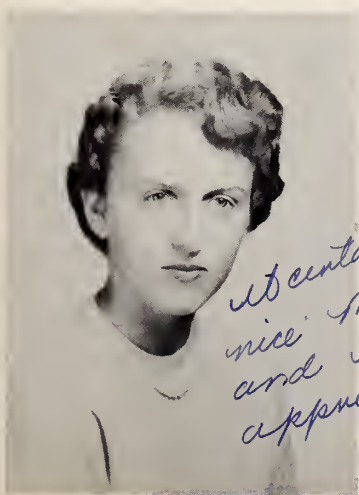 It certa
nice
and
appre